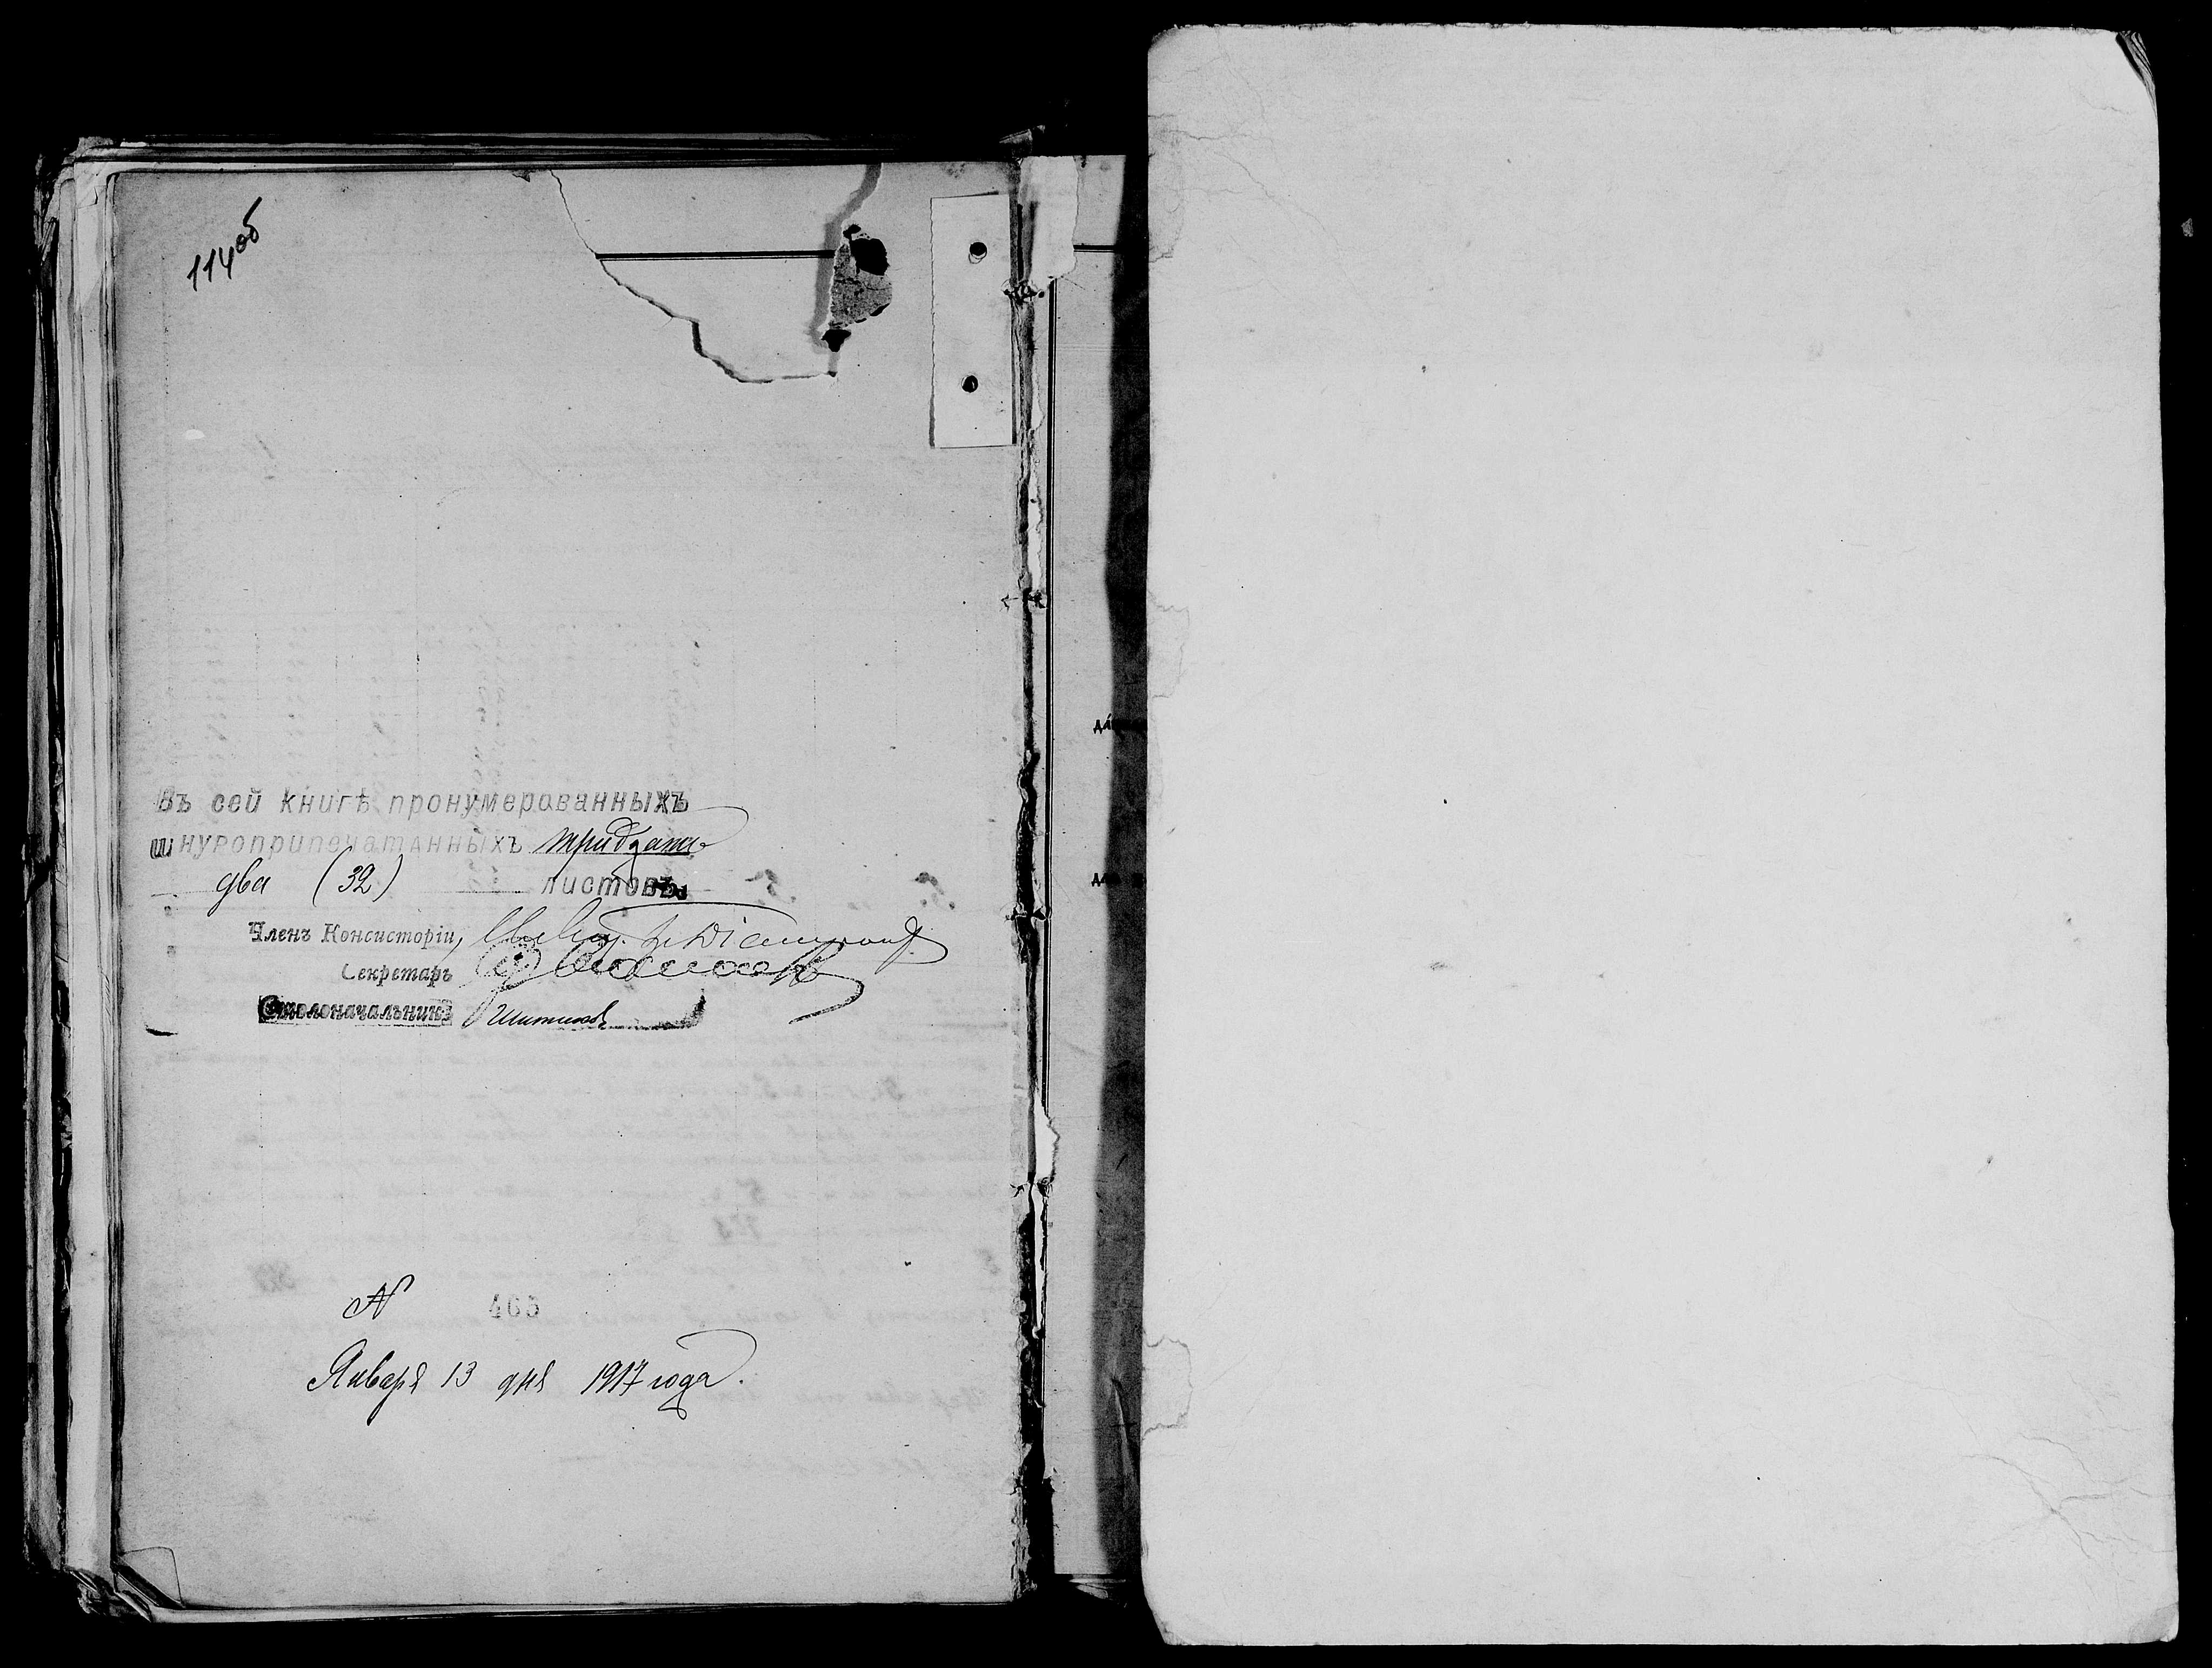 114об
Въ сей книгѣ пронумерованныхъ
шнуроприпечатанныхъ тридцать
два (32) листовъ
Членъ Консисторіи,
Секретарь
Столоначальникъ
N 465
Января 13 дня 1917 года.